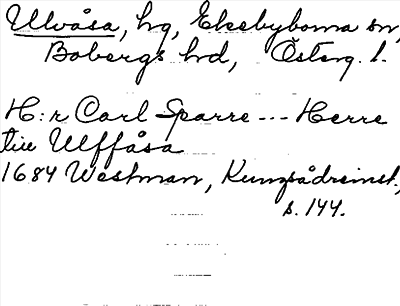 Ulvåsa, hg, Ekebyborna sn,
Bobergs hd, Österg. l.
H:r Carl Sparre --- Herre
till Ulffåsa
1684 Westman, Kungsådreinst.,
s. 144.